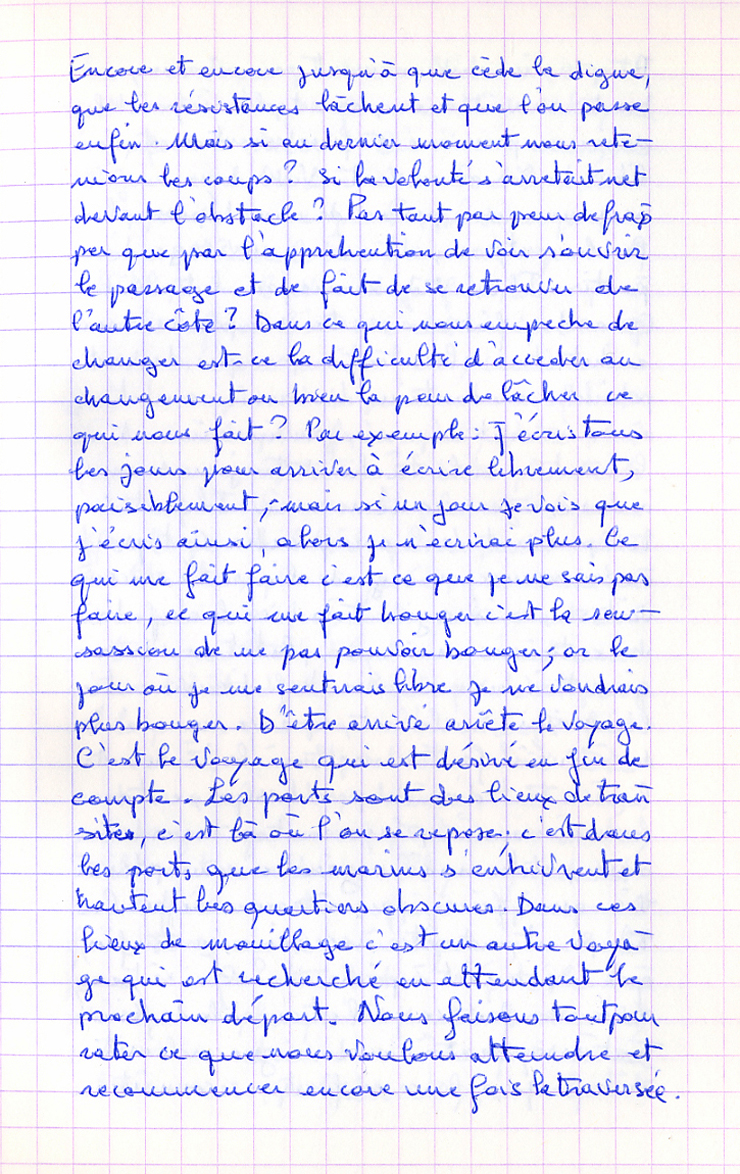 Encore et encore jusqu'à que cède la digue,
que les résistances lâchent et que l'on passe
enfin. Mais si au dernier moment nous rete-
nions les coups ? Si la volonté s'arretait net
devant l'obstacle ? Pas tant par peur de frap
per que par l'apprehention de voir s'ouvrir
le passage et de fait de se retrouver de
l'autre côte ? Dans ce qui nous empeche de
changer est-ce la difficulté d'acceder au
changement ou bien la peur de lâcher ce
qui nous fait ? Par exemple : J'écris tous
les jours pour arriver à écrire librement,
paisiblement, mais si un jour je vois que
j'écris ainsi, alors je n'écrirai plus. Ce
qui me fait faire c'est ce que je ne sais pas
faire, ce qui me fait bouger c'est la sen-
sassion de ne pas pouvoir bouger ; or le
jour où je me sentirais libre je ne voudrais
plus bouger. D'être arrivé arrête le voyage.
C'est le voyage qui est désiré en fin de
compte. Les ports sont des lieux de tran
sites, c'est là où l'on se repose ; c'est dans
les ports que les marins s'enhivrent et
hantent les quartiers obscures. Dans ces
lieux de mouillage c'est un autre voya-
ge qui est recherché en attendant le
prochain départ. Nous faisons tout pour
rater ce que nous voulons atteindre et
recommencer encore une fois la traversée.